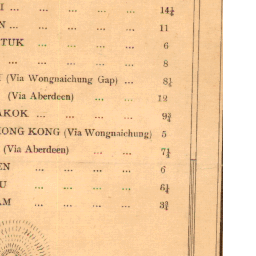 I ... ... ... 14¼
N ... ... ... 11
TUK ... ... ... 6
... ... ... 8
(Via Wongnaichung Gap) ... 8¼
(Via Aberdeen) ... ... 12
AKOK ... ... ... 9¾
HONG KONG (Via Wongnaichung) 5
(Via Aberdeen) ... ... 7¼
EN ... ... ... 6
U ... ... ... 8¼
AM ... ... ... 3¾